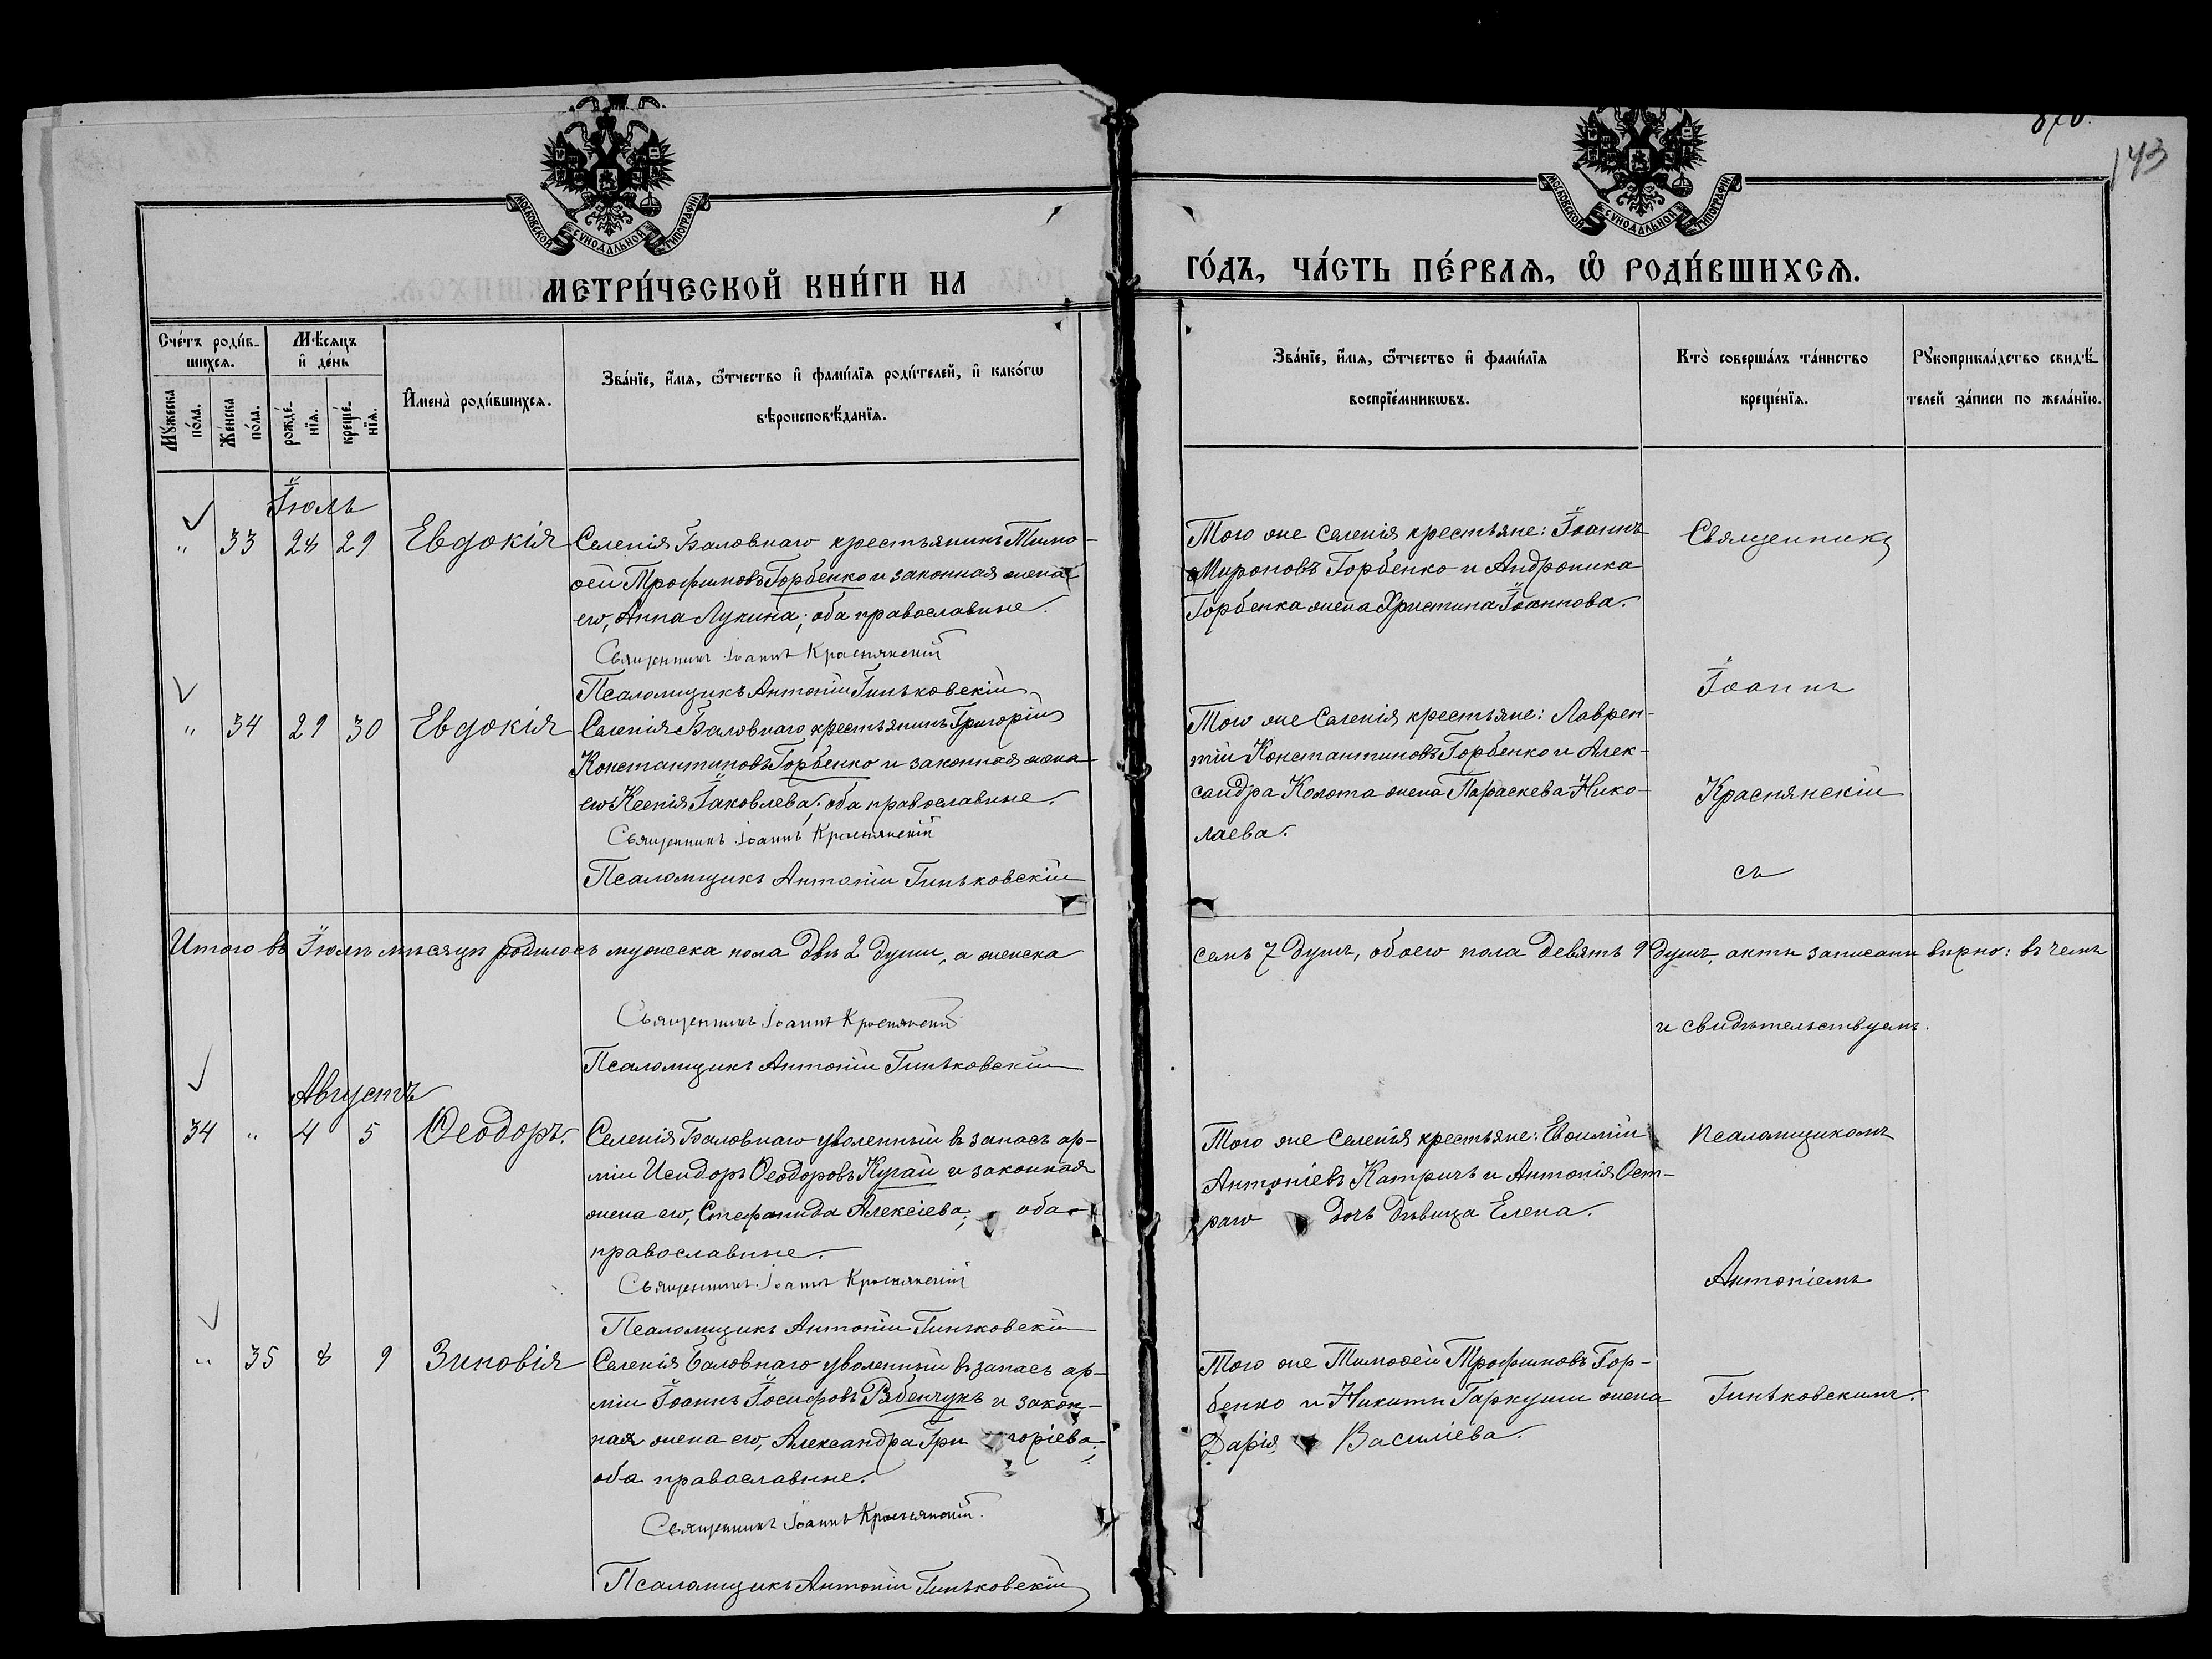 143
МОСКОВСКОЙ СУНОДАЛЬНОЙ ТИПОГРАФІИ
МОСКОВСКОЙ СУНОДАЛЬНОЙ ТИПОГРАФІИ
МЕТРИ́ЧЕСКОЙ КНИ́ГИ НА
ГО́ДЪ, ЧА́СТЬ ПЕ́РВАЯ, Ѽ РОДИ́ВШИХСЯ.
Сче́тъ роди́в-
шихся.
Мѣ́сяцъ
и҆ де́нь
Му́жеска
по́ла.
Же́нска
по́ла.
рожде́-
нїя.
креще́-
нїя.
И҆мена̀ роди́вшихся.
Зва́нїе, и҆́мя, ѻ҆́тчество и҆ фамѝлїя роди́телей, и҆ како́гѡ
вѣроисповѣ́данїя.
Зва́нїе, и҆́мя, ѻ҆́тчество и҆ фами́лїя
воспрїе́мникѡвъ.
Кто̀ соверша́лъ та́инство
креще́нїя.
Рꙋкоприкла́дство свидѣ́-
телей за́писи по жела́нїю.
Іюль
" 33 28 29 Евдокія
Селенія Баловнаго крестьянинъ Тимо-
ѳей Трофимовъ Горбенко и законная жена
его, Анна Лукина; оба православные.
Священникъ Іоаннъ Краснянскій
Псаломщикъ Антоній Гиньковскій
Того же селенія крестьяне: Іоаннъ
Мироновъ Горбенко и Андроника
Горбенка жена Христина Іоаннова.
Священникъ
Іоаннъ
" 34 29 30 Евдокія
Селенія Баловнаго крестьянинъ Григорій
Константиновъ Горбенко и законная жена
его Ксенія Іаковлева; оба православные.
Священникъ Іоаннъ Краснянскій
Псаломщикъ Антоній Гиньковскій
Того же селенія крестьяне: Лаврен-
тій Константиновъ Горбенко и Алек-
сандра Колота жена Параскева Нико-
лаева.
Краснянскій
съ
Итого въ Іюлѣ мѣсяцѣ родилось мужеска пола двѣ 2 души, а женска
семь 7 душъ, обоего пола девять 9 душъ, акты записаны вѣрно: въ чемъ
и свидѣтельствуемъ.
Священникъ Іоаннъ Краснянскій
Псаломщикъ Антоній Гиньковскій
Августъ
34 " 4 5 Ѳеодоръ.
Селенія Баловнаго уволенный въ запасъ ар-
міи Исидоръ Ѳеодоровъ Кугай и законная
жена его, Стефанида Алексіева; оба
православные.
Священникъ Іоаннъ Краснянскій
Псаломщикъ Антоній Гиньковскій
Того же селенія крестьяне: Евѳимій
Антоніевъ Катричъ и Антонія Ост-
раго дочь дѣвица Елена.
псаломщикомъ
Антоніемъ
" 35 8 9 Зиновія
Селенія Баловнаго уволенный въ запасъ ар-
міи Іоаннъ Іосифовъ Рябенчукъ и закон-
ная жена его, Александра Григоріева;
оба православные.
Священникъ Іоаннъ Краснянскій.
Псаломщикъ Антоній Гиньковскій
Того же Тимоѳей Трофимовъ Гор-
бенко и Никиты Гаркуши жена
Дарія Василіева.
Гиньковскимъ.